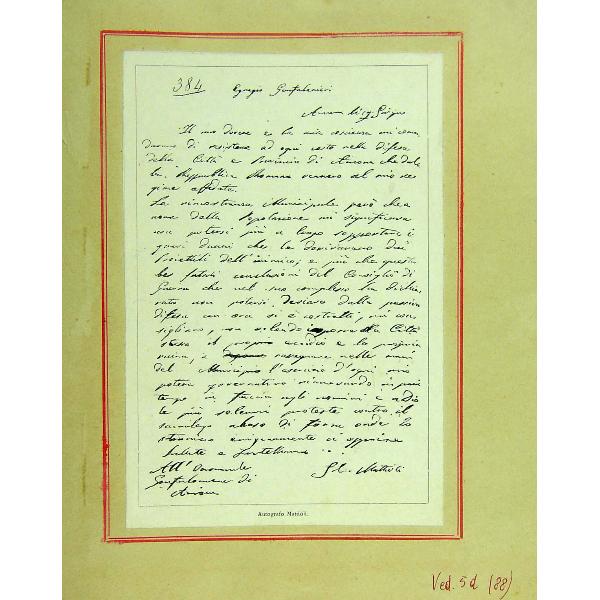 384 Egregio Gonfaloniere
Ancona li 17 Giugno
Il mio dovere e la mia coscienza mi coman
davano di resistere ad ogni costo nella difesa
della Città e Provincia di Ancona che dal
la Repubblica Romana vennero al mio re
gime affidata.
La rimostranza Municipale però che a
nome della Popolazione mi significava
non potersi più a lungo sopportare i
gravi danni che le derivavano
dell'inimico; e più che questa
le conclusioni del Consiglio di
Guerra che nel suo complesso ha dichia
rato non potersi dalla
difesa cui ora si è costretti, mi con
sigliano, non volendo esporre la Città
stessa al proprio eccidio e la propria
ruina, a rassegnare nelle mani
del Municipio l'esercizio d'ogni mio
potere governativo rinnovando in pari
tempo in faccia agli uomini e a Dio
le più solenni proteste contro il
sacrilego abuso di forza onde lo
straniero ci opprime
Salute e fratellanza
All' Onorevole
Gonfaloniere di
Ancona
Mattioli
Autografo Mattioli.
Ved. 5d (88)